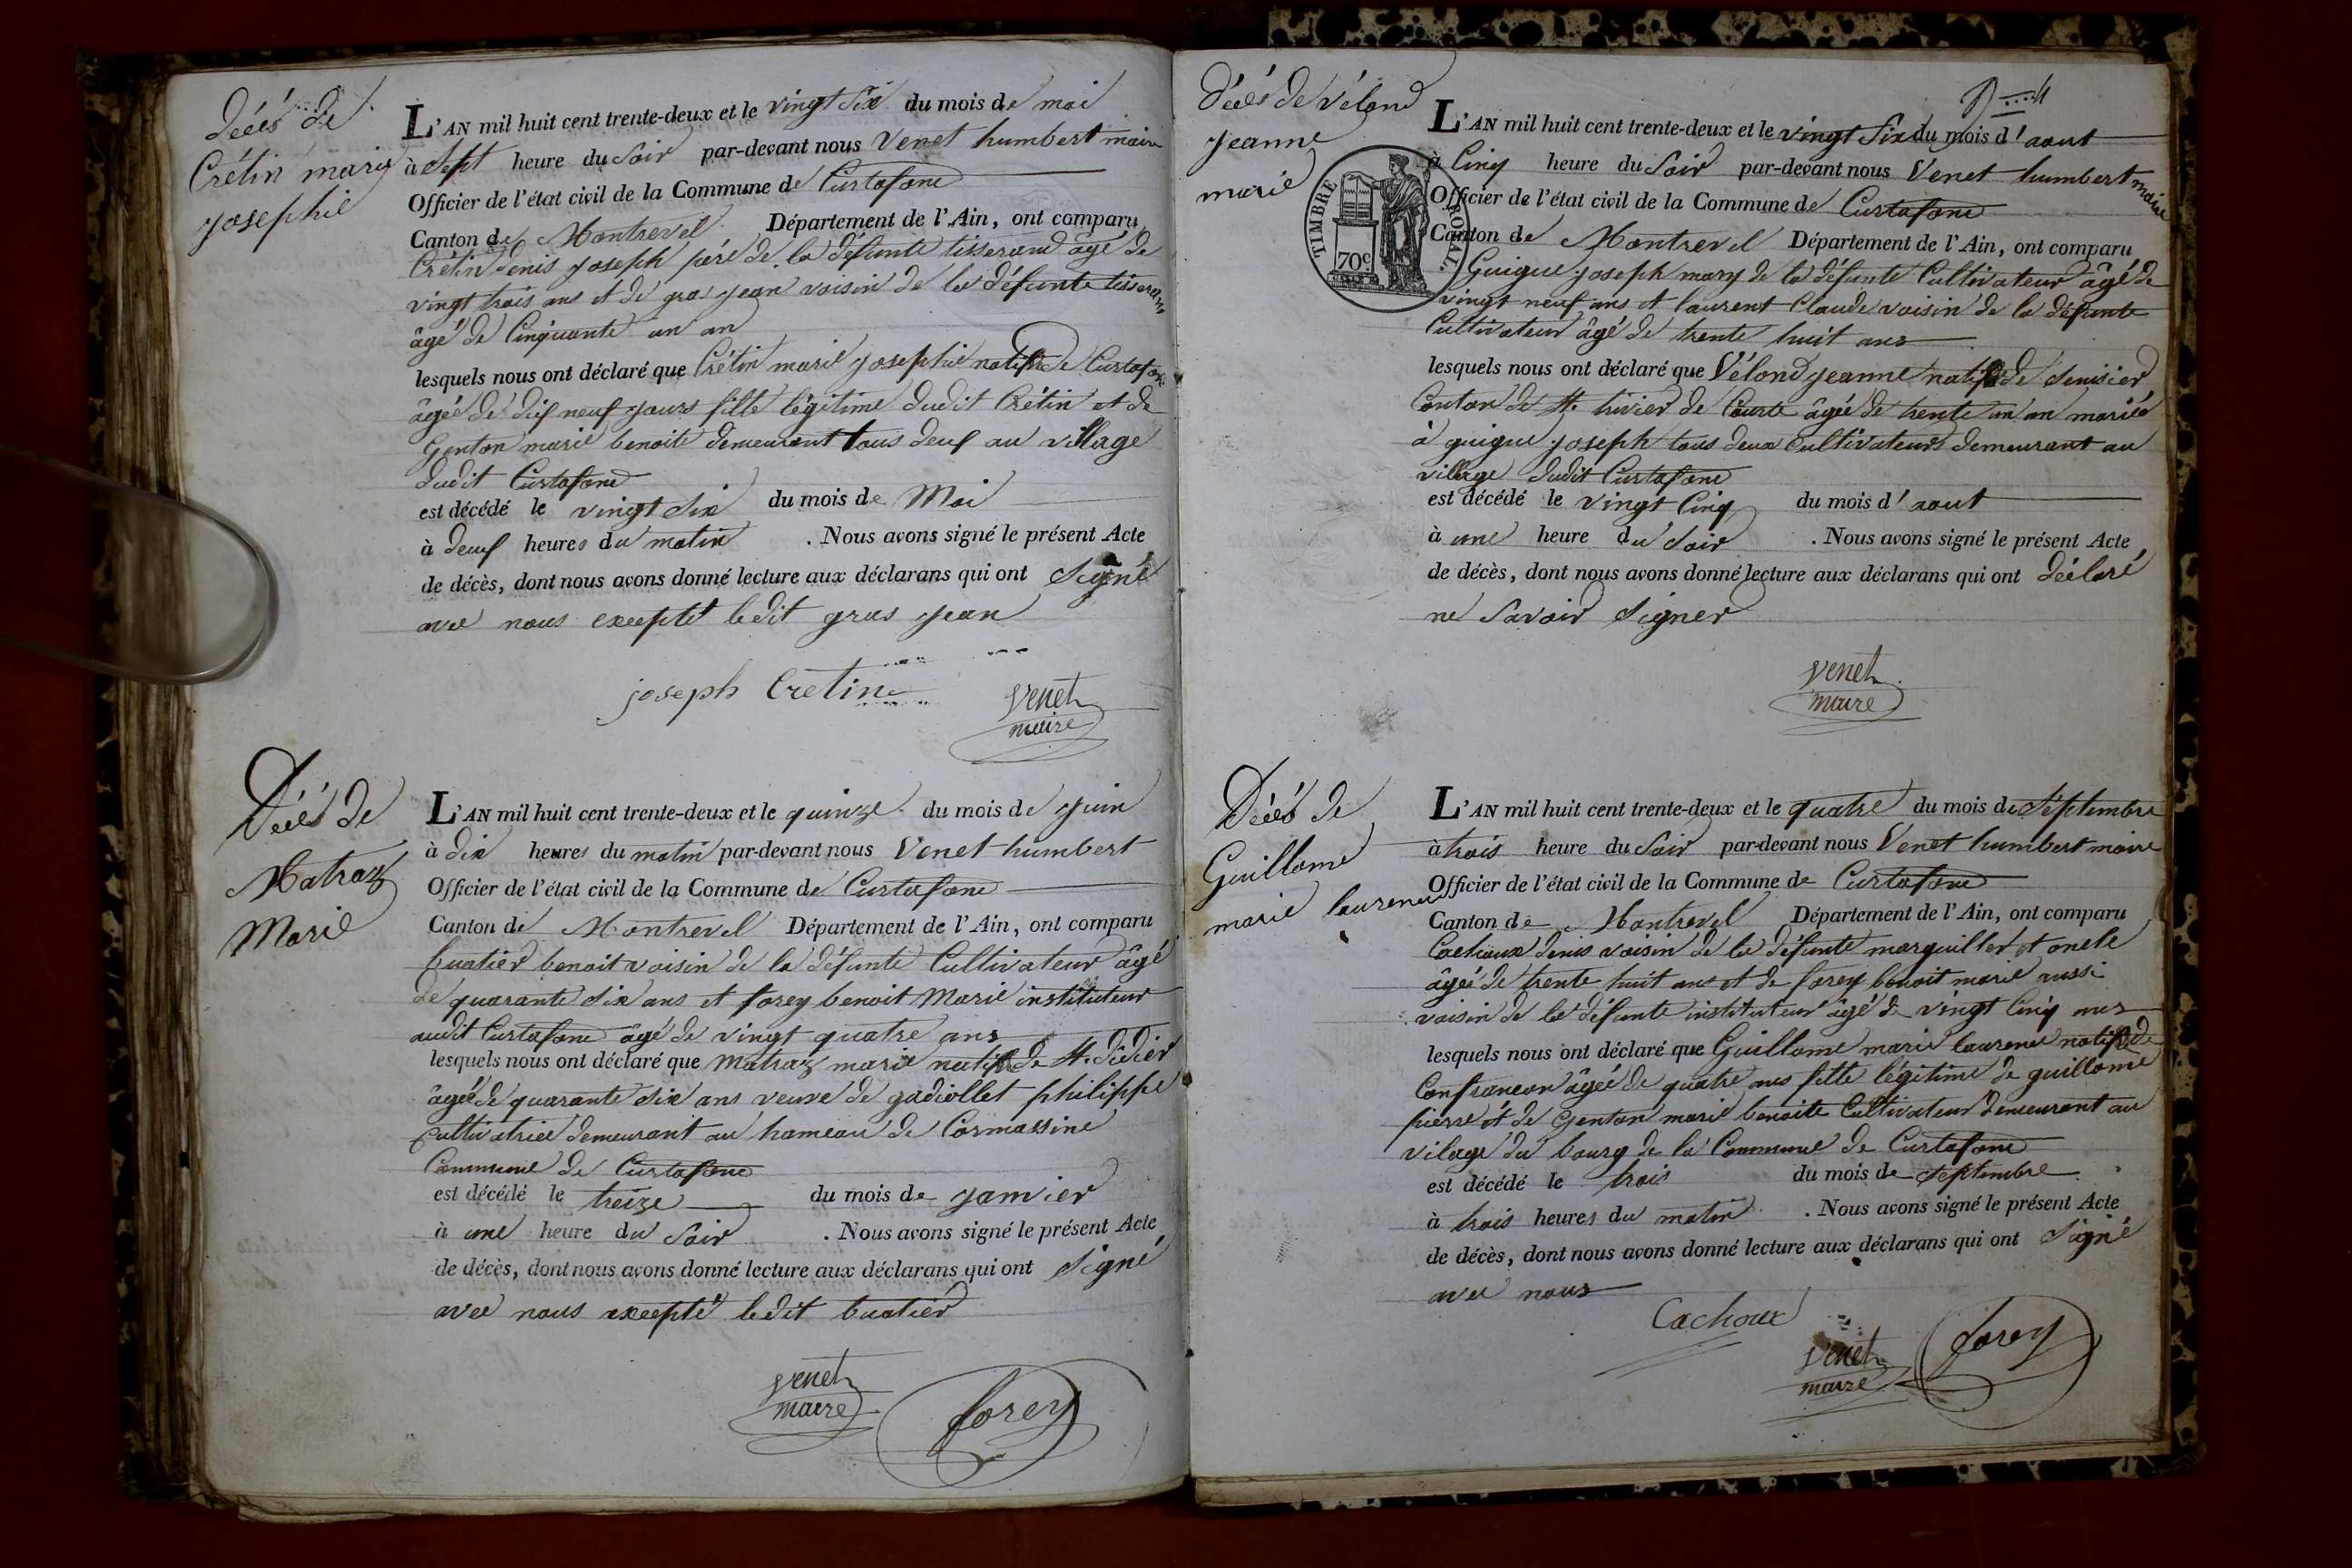 décés de
Crétin marie
josephie
L'AN mil huit cent trente-deux et le vingt six du mois de mai
à sept heure du soir par-devant nous Venet humbert maire
Officier de l'état civil de la Commune de Curtafone
Canton de Montrevel Département de l'Ain, ont comparu
Crétin denis joseph pére de la défunte tisserand âgé de
vingt trois ans et de gras jean voisin de la défunte tisserand
âgé de Cinquante un an
lesquels nous ont déclaré que Crétin marie josephie native de Curtafone
âgée de dix neuf jours fille légitime dudit Crétin et de
Genton marie benoite demeurant tous deux au village
dudit Curtafone
est décédé le vingt six du mois de Mai
à deux heures du matin . Nous avons signé le présent Acte
de décès, dont nous avons donné lecture aux déclarans qui ont signé
avec nous excepté ledit gras jean
joseph Cretin
venet
maire
Décés de
Matraz
Marie
L'AN mil huit cent trente-deux et le quinze du mois de juin
à dix heures du matin par-devant nous Venet humbert
Officier de l'état civil de la Commune de Curtafone
Canton de Montrevel Département de l'Ain, ont comparu
buatier benoit voisin de la défunte Cultivateur âgé
de quarante six ans et forey benoit Marie instituteur
audit Curtafone âgé de vingt quatre ans
lesquels nous ont déclaré que Matraz marie native de St. didier
âgée de quarante six ans veuve de gadiollet philippe
Cultivatrice demeurant au hameau de Cormassine
Commune de Curtafone
est décédé le treize du mois de janvier
à une heure du soir . Nous avons signé le présent Acte
de décès, dont nous avons donné lecture aux déclarans qui ont signé
avec nous excepté ledit buatier
venet
maire
forey
Décés de Vélond
jeanne
marie
TIMBRE ROYAL
70c
L'AN mil huit cent trente-deux et le vingt six du mois d'aout
à Cinq heure du soir par-devant nous Venet humbert maire
Officier de l'état civil de la Commune de Curtafone
Canton de Montrevel Département de l'Ain, ont comparu
Guigue joseph mary de la défunte Cultivateur âgé de
vingt neuf ans et laurent Claude voisin de la défunte
Cultivateur âgé de trente huit ans
lesquels nous ont déclaré que Vélond jeanne native de denisier
Canton de St. trivier de Courte âgée de trente un an mariée
à guigue joseph tous deux Cultivateurs demeurant au
village dudit Curtafone
est décédé le vingt Cinq du mois d'aout
à une heure du soir . Nous avons signé le présent Acte
de décès, dont nous avons donné lecture aux déclarans qui ont déclaré
ne savoir signer
venet
maire
Décés de
Guillome
marie laurence
L'AN mil huit cent trente-deux et le quatre du mois de Septembre
à trois heure du soir par-devant nous Venet humbert maire
Officier de l'état civil de la Commune de Curtafone
Canton de Montrevel Département de l'Ain, ont comparu
Cachoux denis voisin de la défunte marguiller et oncle
âgée de trente huit ans et de forey benoit marie aussi
voisin de la défunte instituteur âgé de vingt Cinq ans
lesquels nous ont déclaré que Guillome marie laurence native de
Confrancon âgée de quatre ans fille légitime de guillome
pierre et de Genton marie benoite Cultivateur demeurant au
vilage du bourg de la Commune de Curtafone
est décédé le trois du mois de septembre
à trois heures du matin . Nous avons signé le présent Acte
de décès, dont nous avons donné lecture aux déclarans qui ont signé
avec nous
Cachoux
venet
maire
forey